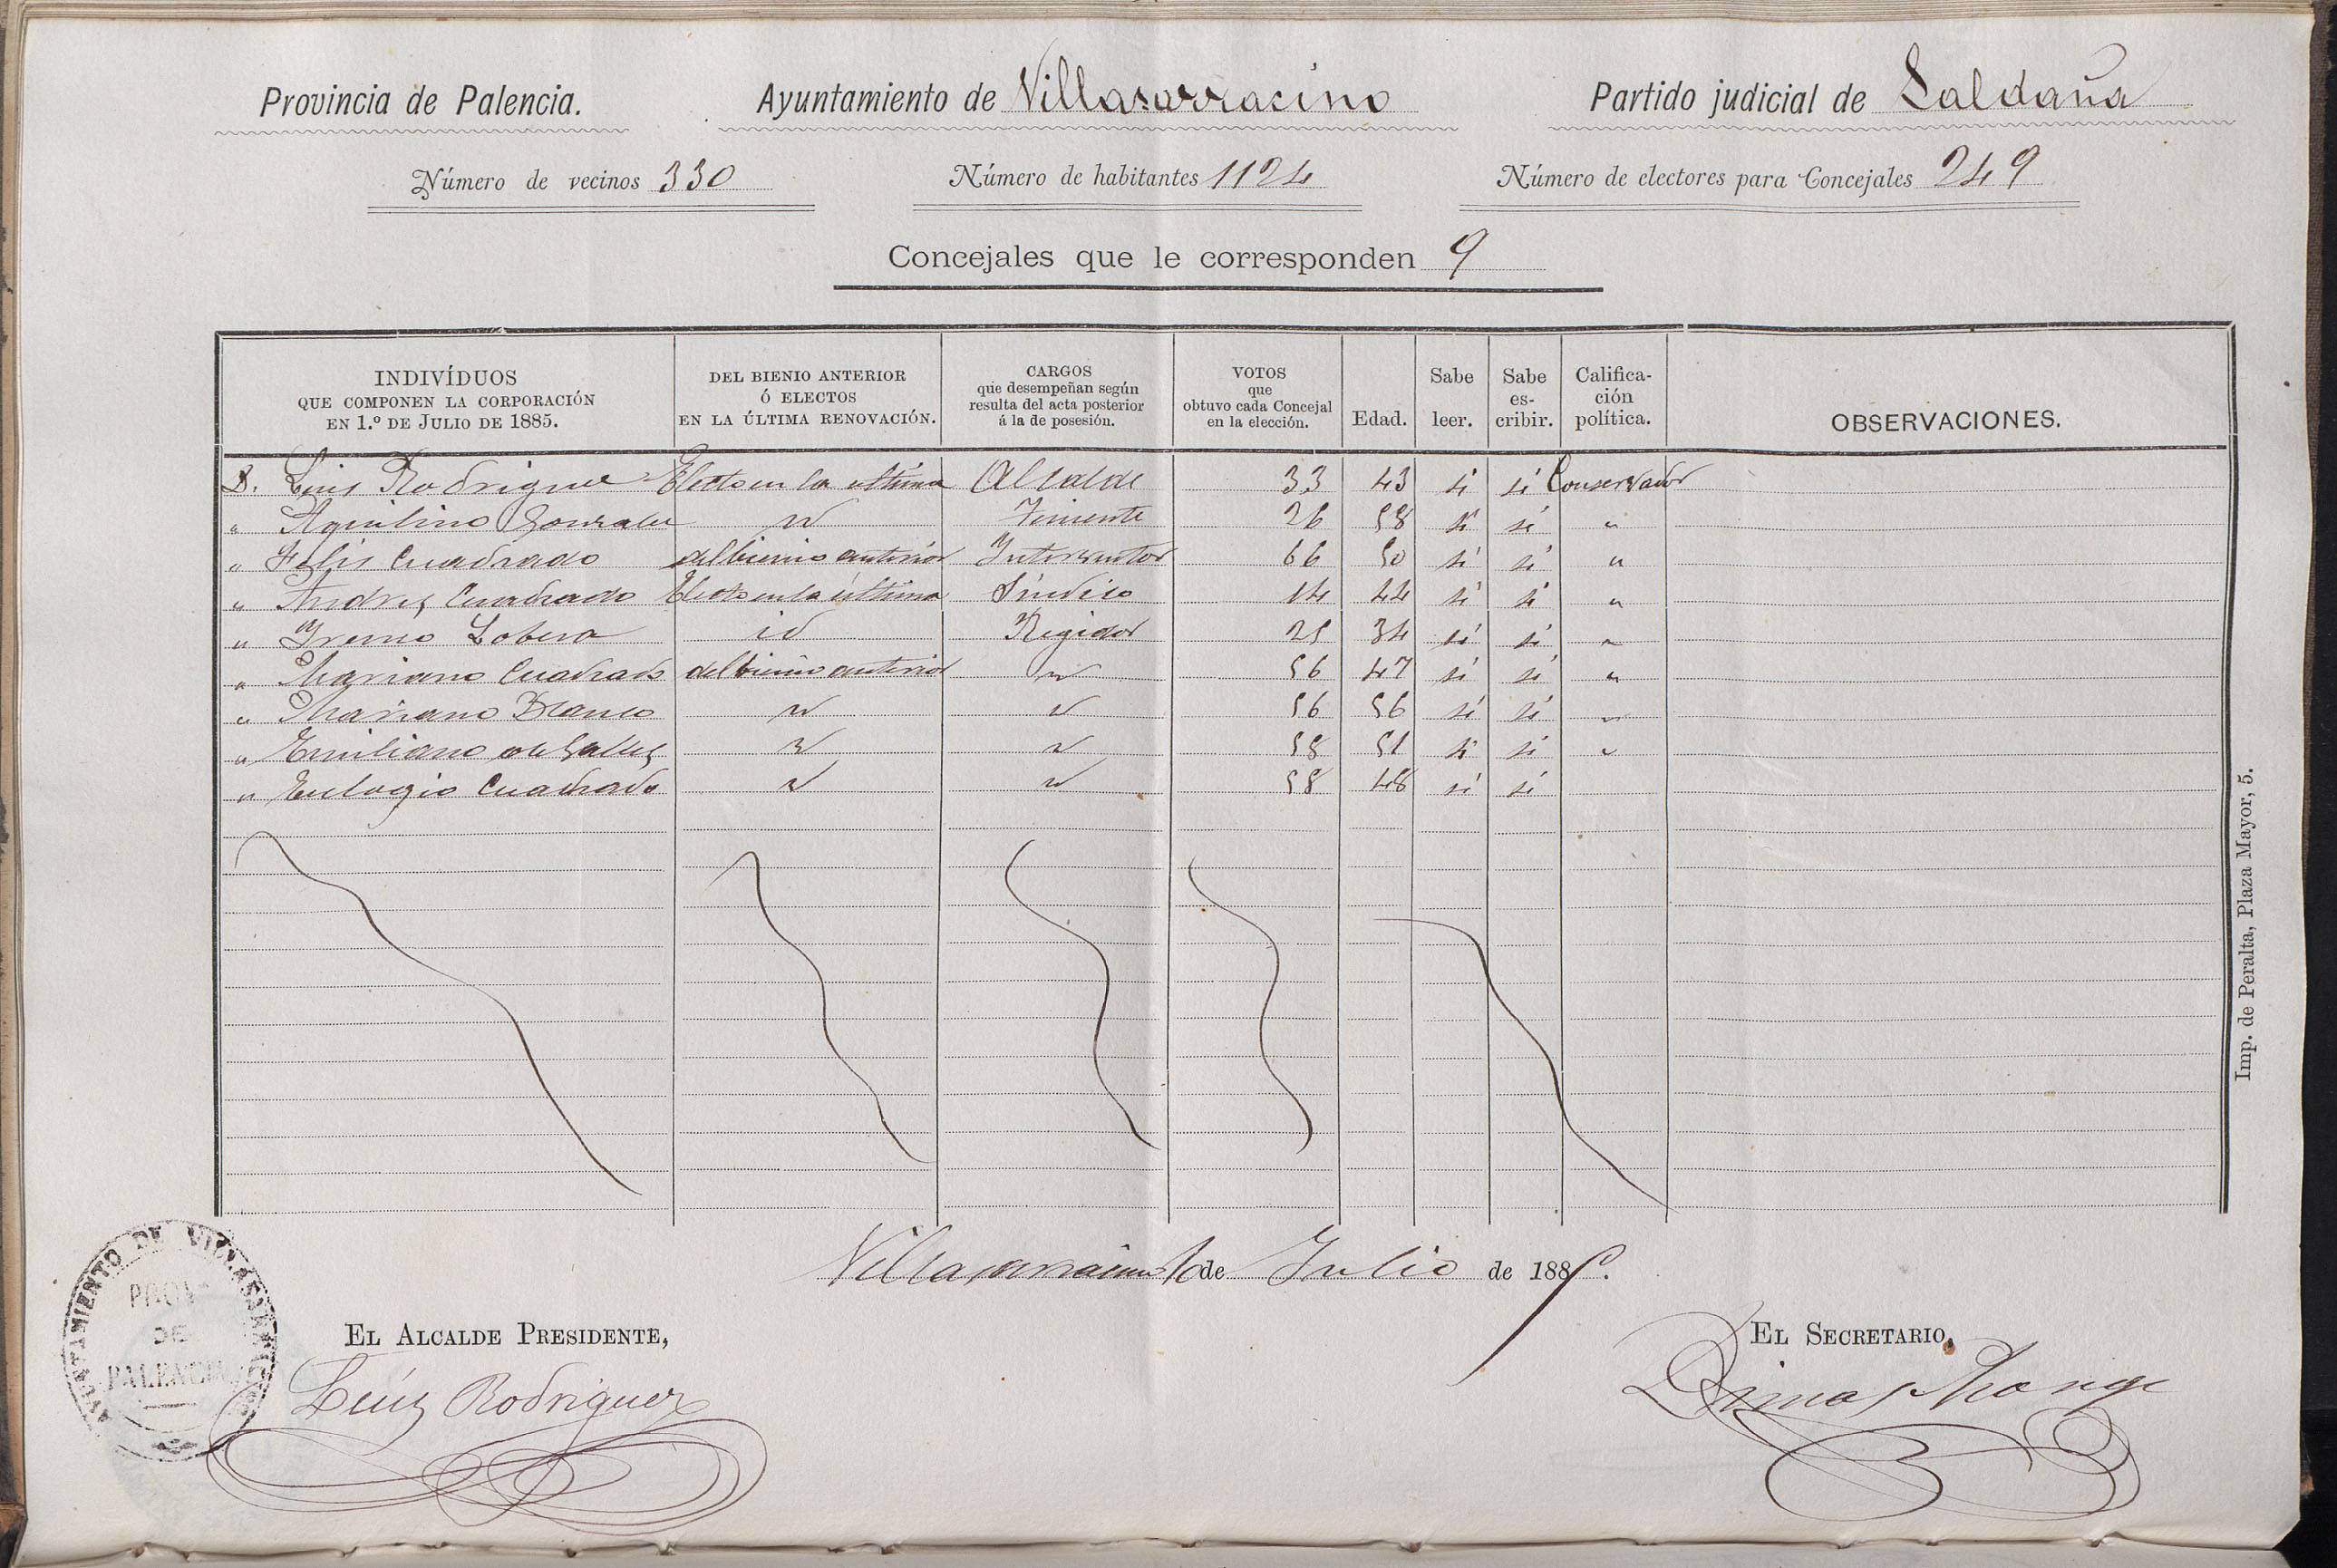 Provincia de Palencia. Ayuntamiento de Villasarracino Partido judicial de Saldaña
Número de vecinos 330 Número de habitantes 1124 Número de electores para Concejales 249
Concejales que le corresponden 9
INDIVÍDUOS QUE COMPONEN LA CORPORACIÓN EN 1.º DE JULIO DE 1885. DEL BIENIO ANTERIOR Ó ELECTOS EN LA ÚLTIMA RENOVACIÓN. CARGOS que desempeñan según resulta del acta posterior á la de posesión. VOTOS que obtuvo cada Concejal en la elección. Edad. Sabe leer. Sabe es-cribir. Califica-ción política. OBSERVACIONES.
D. Luis Rodriguez Electo en la ultima Alcalde 33 43 si si Conservador
" Aquilino Gonzalez id Teniente 26 58 si si "
" Felis Cuadrado del bienio anterior Interventor 66 50 si si "
" Andres Cuadrado Electo en la última Síndico 14 44 si si "
" Yreneo Lobera id Regidor 25 34 si si "
" Mariano Cuadrado del bienio anterior id 56 47 si si "
" Mariano Blanco id id 56 56 si si "
" Emiliano de id id 58 51 si si "
" Eulogio Cuadrado id id 58 48 si si
Villasarracino 1º de Julio de 1885.
EL ALCALDE PRESIDENTE, EL SECRETARIO,
Luis Rodriguez Dimas Monge
AYUNTAMIENTO DE VILLASARRACINO
PROVª
DE
PALENCIA
Imp. de Peralta, Plaza Mayor, 5.